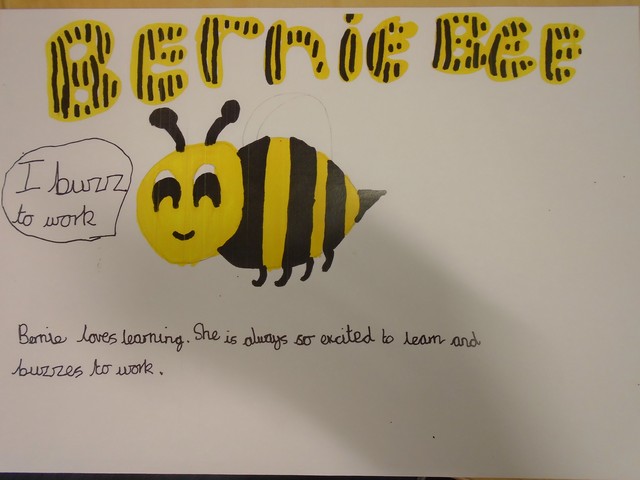 BERNIE BEE
I buzz
to work
Bernie loves learning. She is always so excited to learn and
buzzes to work.